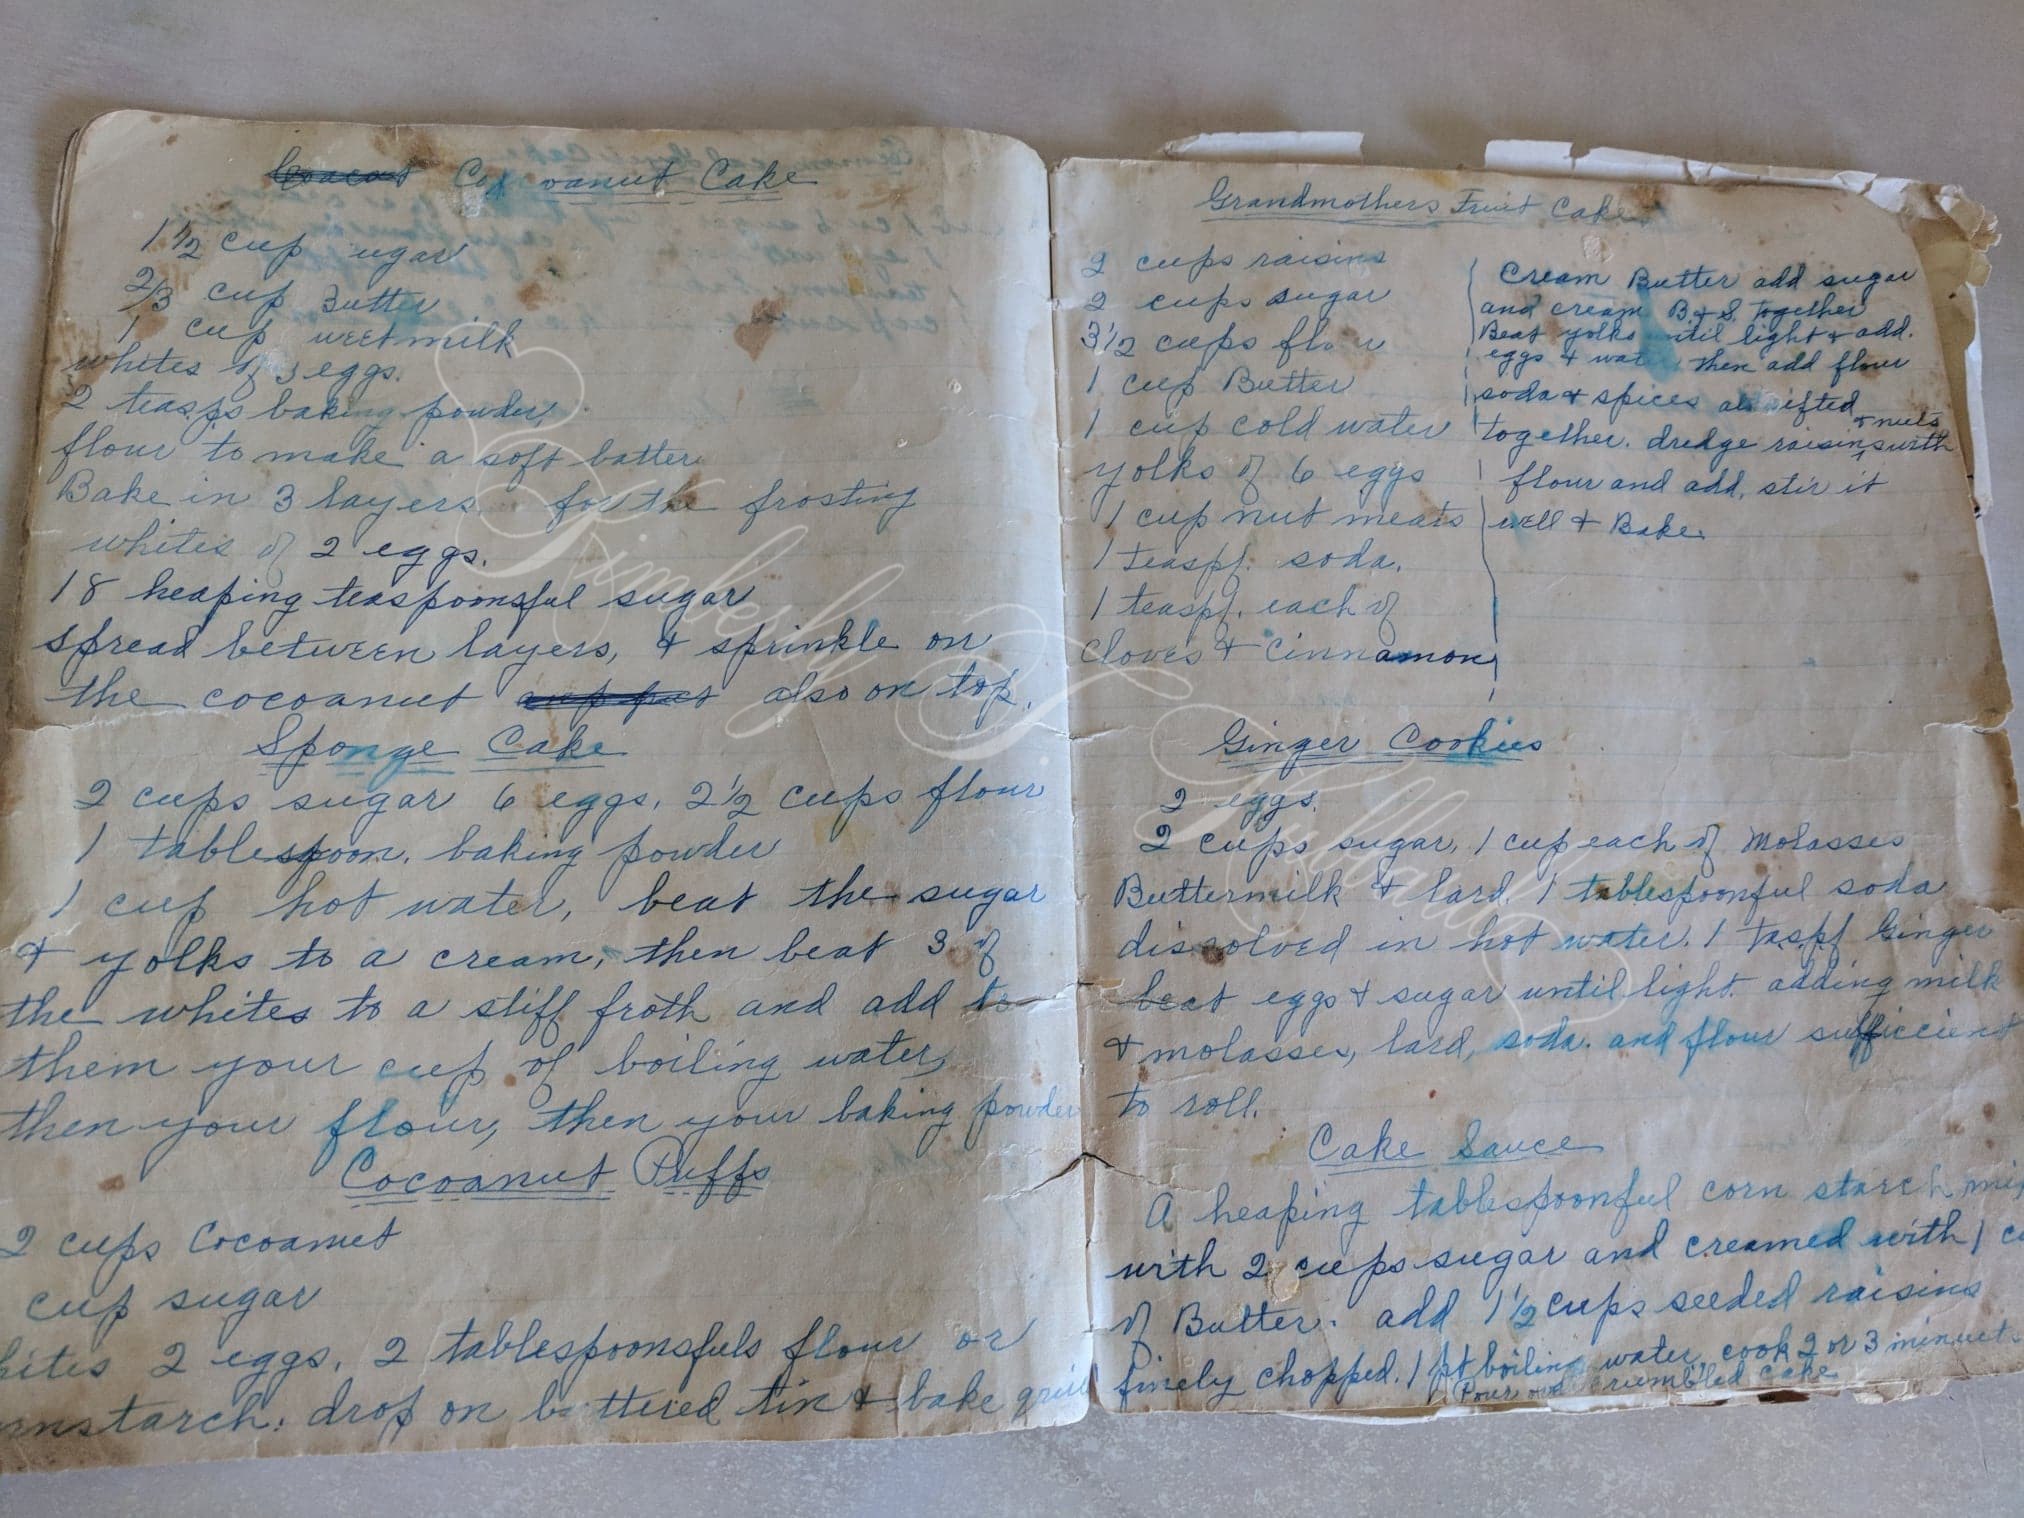 Cocoanut Cake
1 1/2 cup ugar
2/3 cup Butter
1 cup weetmilk
whites of 3 eggs.
2 teasps baking powder,
flour to make a soft batter
Bake in 3 layers. for the frosting
whites of 2 eggs.
18 heaping teaspoonsful sugar
spread between layers, & sprinkle on
the cocoanut also on top.
Sponge Cake
2 cups sugar 6 eggs, 2 1/2 cups flour
1 tablespoon. baking powder
1 cup hot water, beat the sugar
& yolks to a cream, then beat 3 of
the whites to a stiff froth and add to
them your cup of boiling water,
then your flour, then your baking powder
Cocoanut Puffs
2 cups Cocoanut
cup sugar
hites 2 eggs, 2 tablespoonsfuls flour or
rnstarch; drop on buttered tin & bake
Grandmothers Fruit Cake.
2 cups raisins
2 cups sugar
3 1/2 cups flour
1 cup Butter
1 cup cold water
yolks of 6 eggs
1 cup nut meats
1 teaspf. soda.
1 teaspf. each of
cloves & cinnamon
Cream Butter add sugar
and cream B & S. together
Beat yolks until light & add.
eggs & wat then add flour
soda & spices all sifted
together. dredge raisins & nuts with
flour and add, stir it
well & Bake.
Ginger Cookies
2 eggs.
2 cups sugar, 1 cup each of Molasses
Buttermilk & lard. 1 tablespoonful soda
dissolved in hot water. 1 taspf Ginger
beat eggs & sugar until light. adding milk
& molasses, lard, soda. and flour sufficient
to roll.
Cake Sauce
A heaping tablespoonful corn starch mix
with 2 cups sugar and creamed with 1 cu
of Butter. add 1 1/2 cups seeded raisins
finely chopped. 1 pt boiling water, cook 2 or 3 minuets
Pour over crumbled cake
Kimberly J. Hubbard